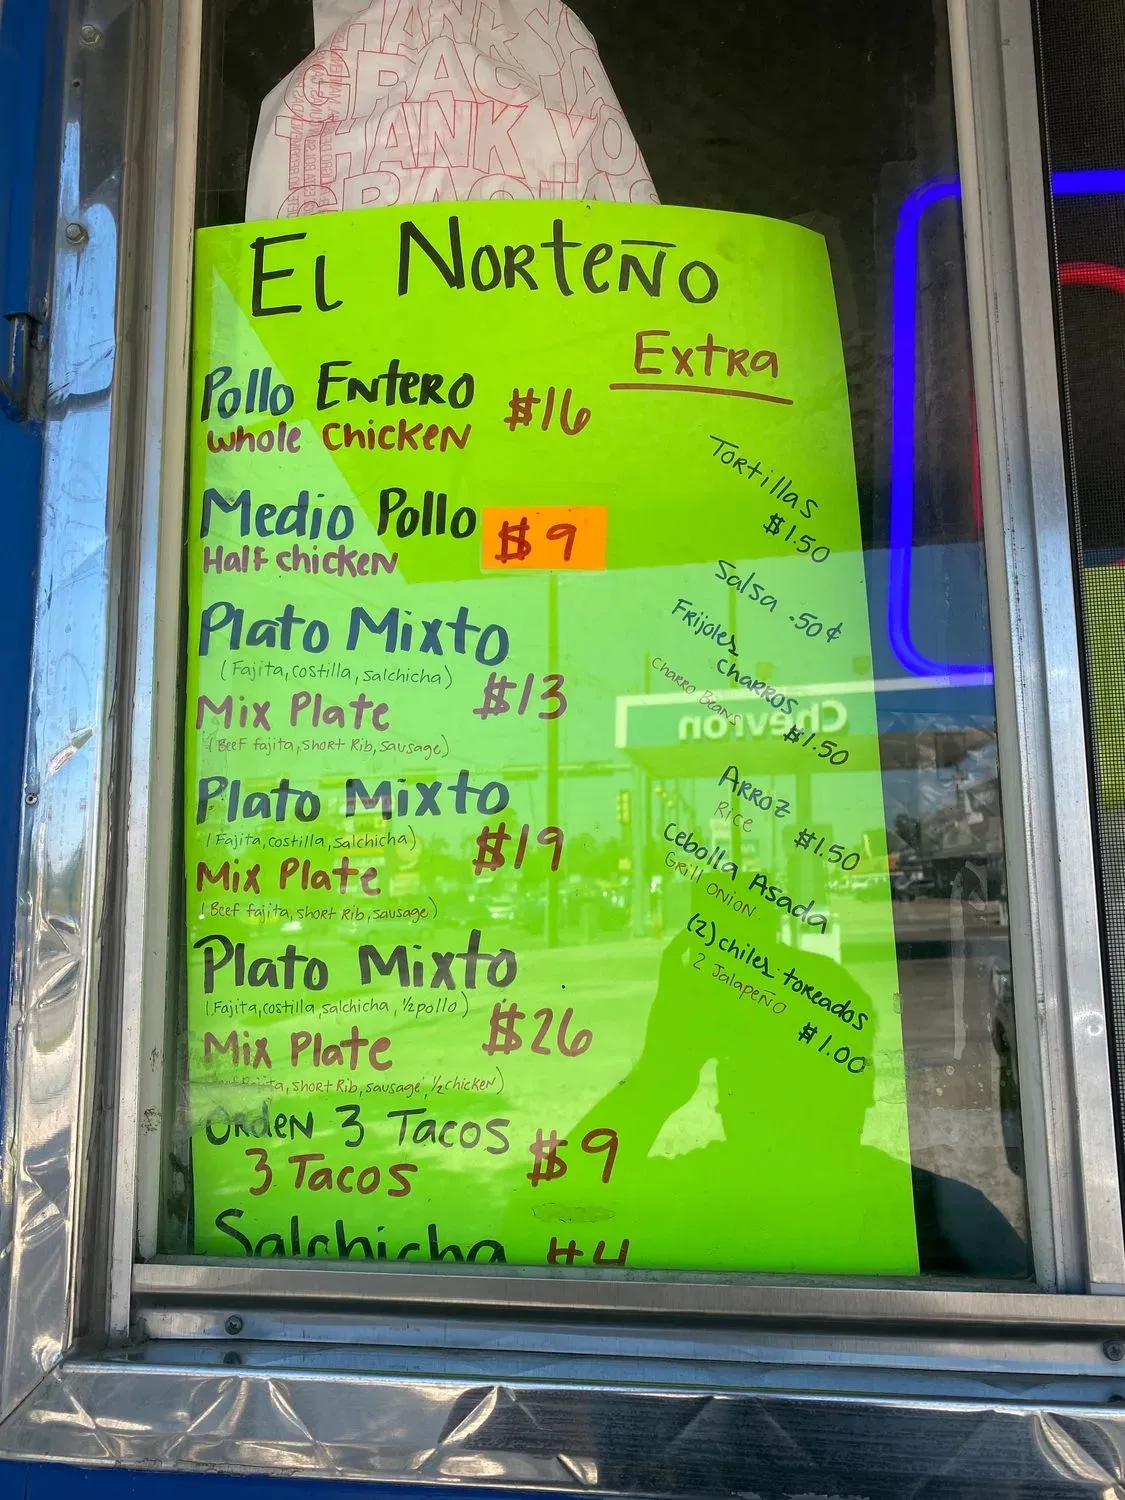 THANK YOU
GRACIAS
THANK YOU
GRACIAS
El Norteño
Extra
Pollo Entero $16
Whole Chicken
Medio Pollo $9
Half chicken
Plato Mixto
(Fajita, costilla, salchicha) $13
Mix Plate
(Beef fajita, short Rib, sausage)
Plato Mixto
(Fajita, costilla, salchicha) $19
Mix Plate
(Beef fajita, short Rib, sausage)
Plato Mixto
(Fajita, costilla, salchicha, 1/2 pollo) $26
Mix Plate
short Rib, sausage, 1/2 chicken)
Orden 3 Tacos $9
3 Tacos
Salchicha $4
Tortillas
$1.50
Salsa .50¢
Frijoles
charros
Charro Beans $1.50
Arroz
Rice $1.50
Cebolla Asada
Grill onion
(2) chiles toreados
2 Jalapeño $1.00
Chevron